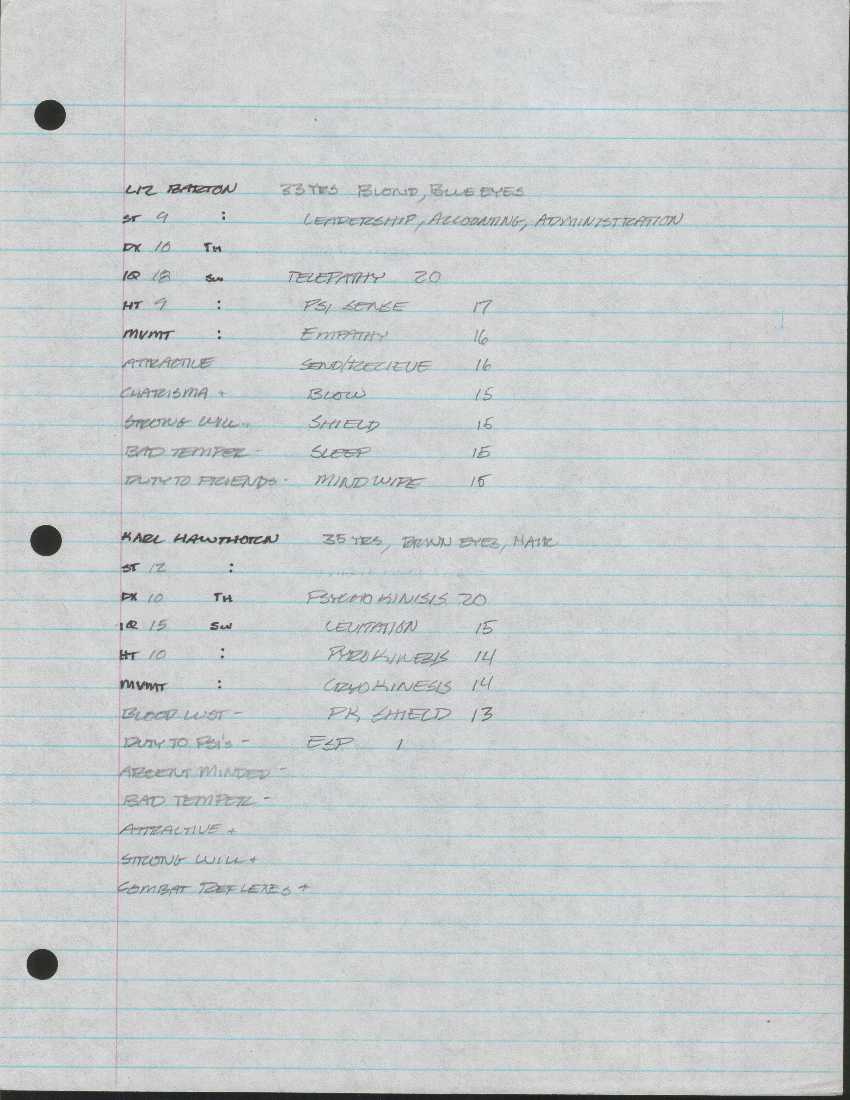 LIZ BARTON 33 YRS BLOND, BLUE EYES
ST 9 : LEADERSHIP, ACCOUNTING, ADMINISTRATION
DX 10 TH
IQ 18 SW TELEPATHY 20
HT 9 : PSI SENSE 17
MVMT : EMPATHY 16
ATTRACTIVE SEND/RECIEVE 16
CHARISMA + BLOW 15
STRONG WILL SHIELD 15
BAD TEMPER - SLEEP 15
DUTY TO FRIENDS - MIND WIPE 15
KARL HAWTHORN 35 YRS, BRWN EYES, HAIR
ST 12 :
DX 10 TH PSYCHOKINISIS 20
IQ 15 SW LEVITATION 15
HT 10 : PYROKINESIS 14
MVMT : CRYOKINESIS 14
BLOOD LUST - PK SHIELD 13
DUTY TO PSI'S - ESP 1
ABSENT MINDED -
BAD TEMPER -
ATTRACTIVE +
STRONG WILL +
COMBAT REFLEXES +